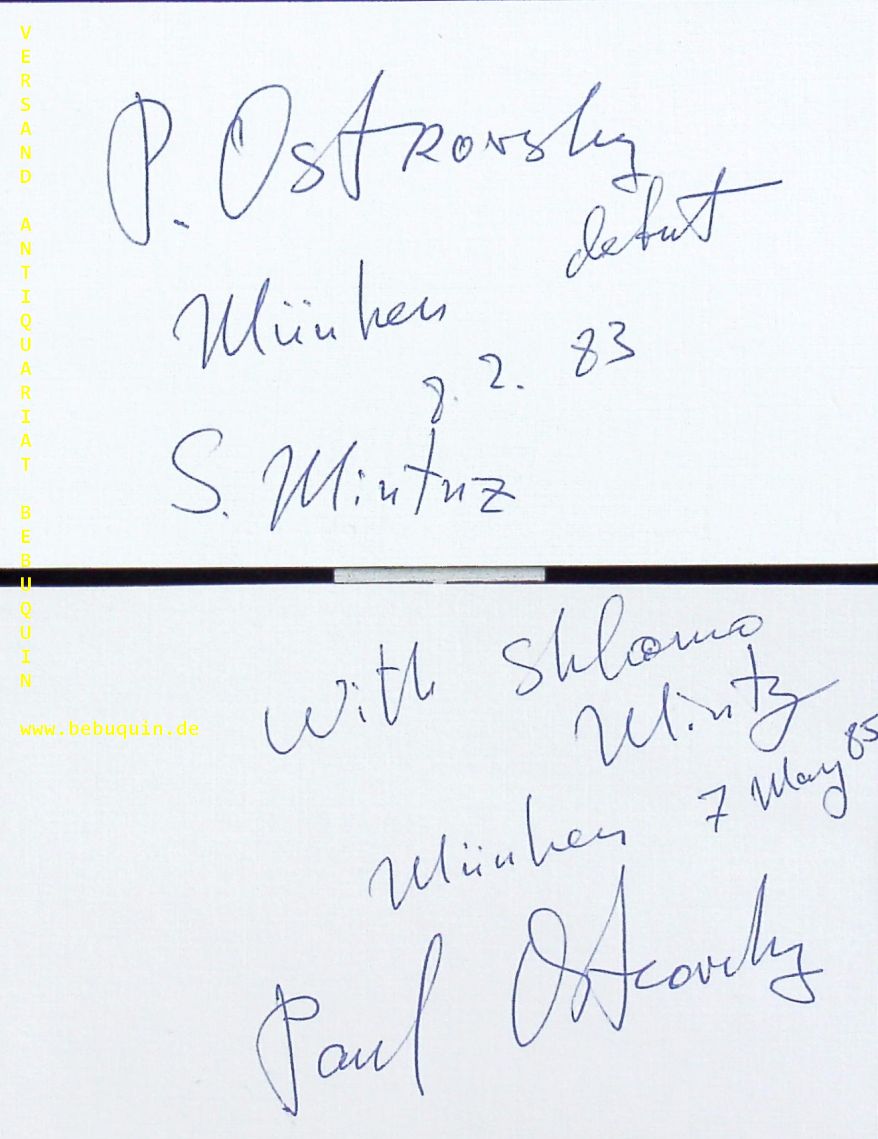 VERSAND ANTIQUARIAT BEBUQUIN
www.bebuquin.de
P. Ostrovsky
debut
München
8. 2. 83
S. Mintz
With Shlomo
Mintz
7 May 85
München
Paul Ostrovsky